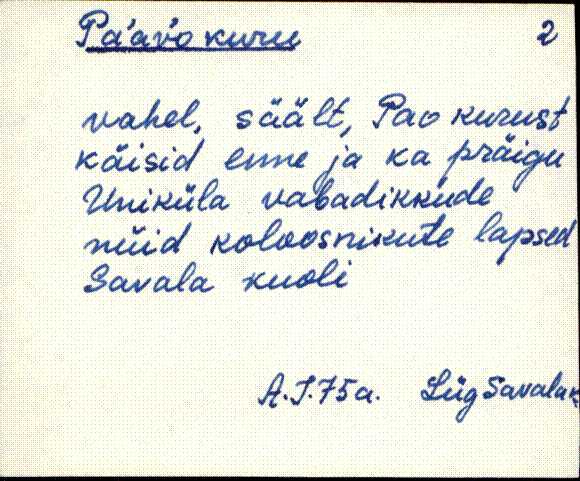 Pa'avo kuru 2
vahel, säält, Pao kurust
käisid enne ja ka präigu
Uniküla vabadikkude
nüid koloosnikute lapsed
Savala kuoli
A.J.75a. Lüg Savalak